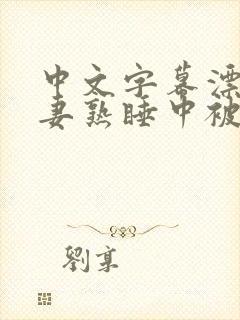 中文字幕漂
妻熟睡中被
劉享